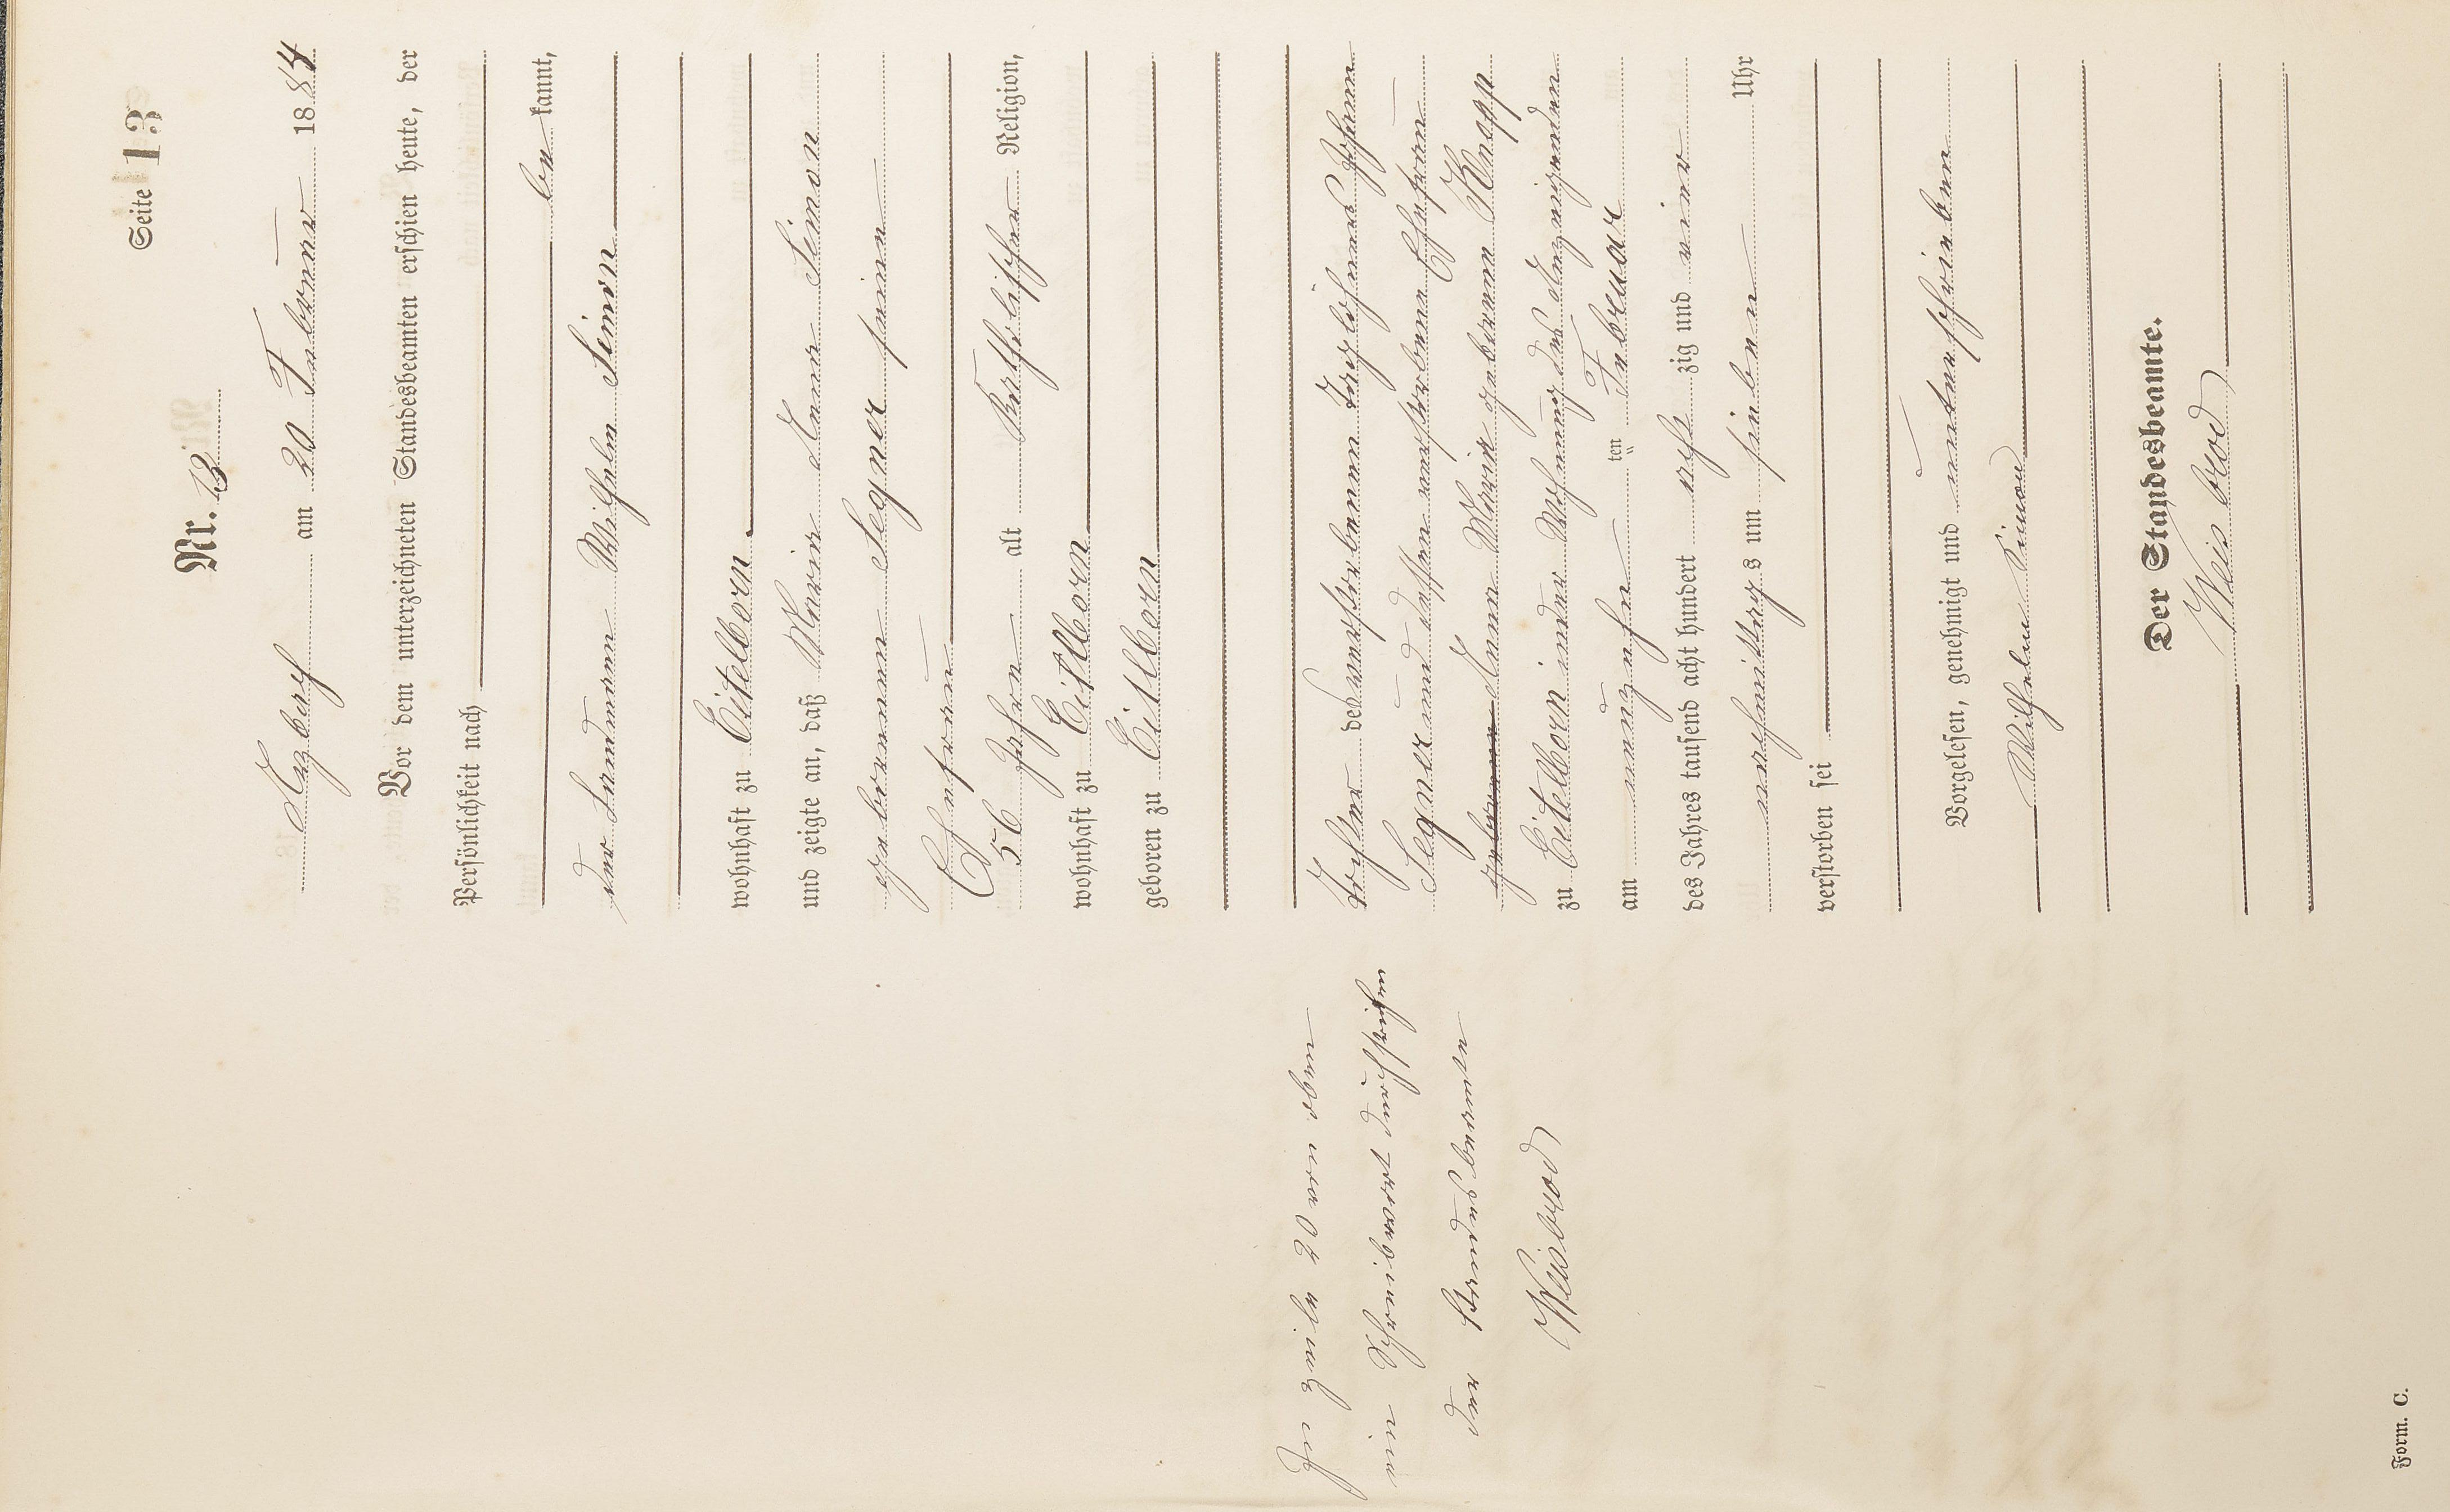 Seite 13
Nr. 13
Arzbach am 20 Februar 1884
Vor dem unterzeichneten Standesbeamten erschien heute, der
Persönlichkeit nach
be kannt,
der Landmann Wilhelm Simon
wohnhaft zu Eitelborn
und zeigte an, daß Maria Anna Simon
geborenen Segner seine
Ehefrau
56 Jahre alt Katholischer Religion,
wohnhaft zu Eitlborn
geboren zu Eitlborn
Tochter des verstorbenen Johann
Segner und dessen verstorbene Ehefrau
geborene Anna Maria geborene Knapp
zu Eitelborn in der Wohnung des Anzeigenden
am neunzehn ten Februar
des Jahres tausend acht hundert acht zig und vier
nachmittag s um sieben Uhr
verstorben sei
Vorgelesen, genehmigt und unterschrieben
Wilhelm Simon
Der Standesbeamte.
Weisbrod
In Zeile 20 von oben
ein Schreibwort durchstrichen
der Standesbeamte
Weisbrod
Form. C.